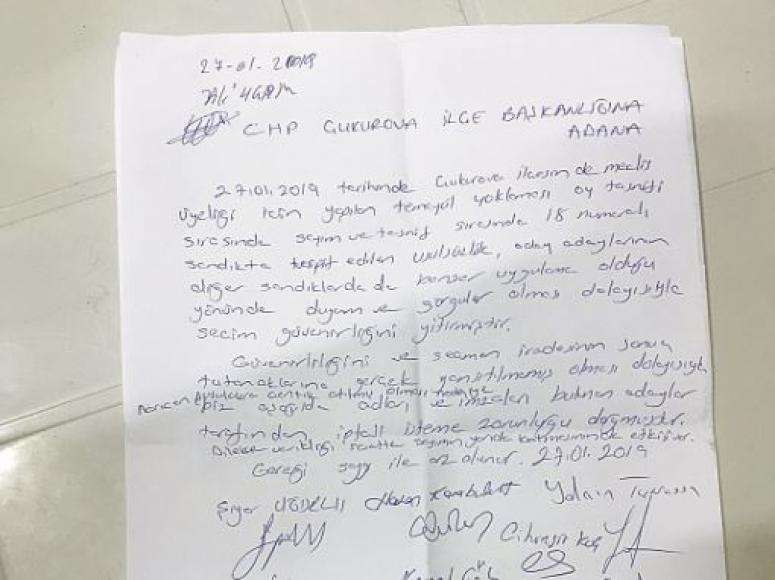 27-01-2019
CHP ÇUKUROVA İLÇE BAŞKANLIĞINA
ADANA
27.01.2019 tarihinde Çukurova ilçesinde meclis
üyeliği için yapılan temayül yoklaması oy tasnifi
sırasında seçim ve tasnif sırasında 18 numaralı
sandıkta tespit edilen usulsüzlük, aday adaylarının
diğer sandıklarda da benzer uygulama olduğu
yönünde duyum ve görgüler olması dolayısıyla
seçim güvenirliğini yitirmiştir.
Güvenirliliğini ve seçmen iradesinin sonuç
tutanaklarına gerçek yansıtılmamış olması dolayısıyla
biz aşağıda adları ve imzaları bulunan adaylar
tarafından iptali isteme zorunluğu doğmuştur.
Dilekçe verildiği saatte seçimin
Gereği saygı ile arz olunur. 27.01.2019
Yalçın